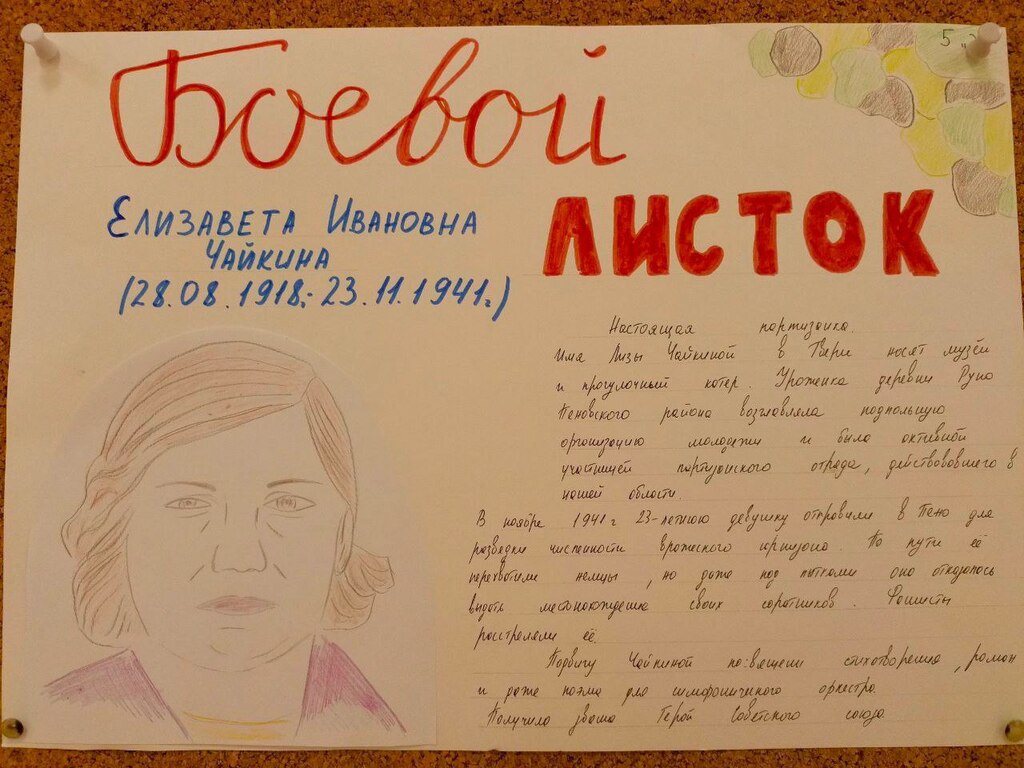 5 "
Боевой
ЛИСТОК
Елизавета Ивановна
Чайкина
(28.08.1918г.- 23.11.1941г.)
Настоящая партизанка.
Имя Лизы Чайкиной в Твери носят музей
и прогулочный катер. Уроженка деревни Руно
Пеновского района возглавляла подпольную
организацию молодежи и была активной
участницей партизанского отряда, действовавшего в
нашей области.
В ноябре 1941 г 23-летнюю девушку отправили в Пено для
разведки численности вражеского гарнизона. По пути её
перехватили немцы, но даже под пытками она отказалась
выдать местонахождение своих соратников. Фашисты
расстреляли её.
Подвигу Чайкиной посвящены стихотворение, роман
и даже поэма для симфонического оркестра.
Получила звание Герой Советского союза